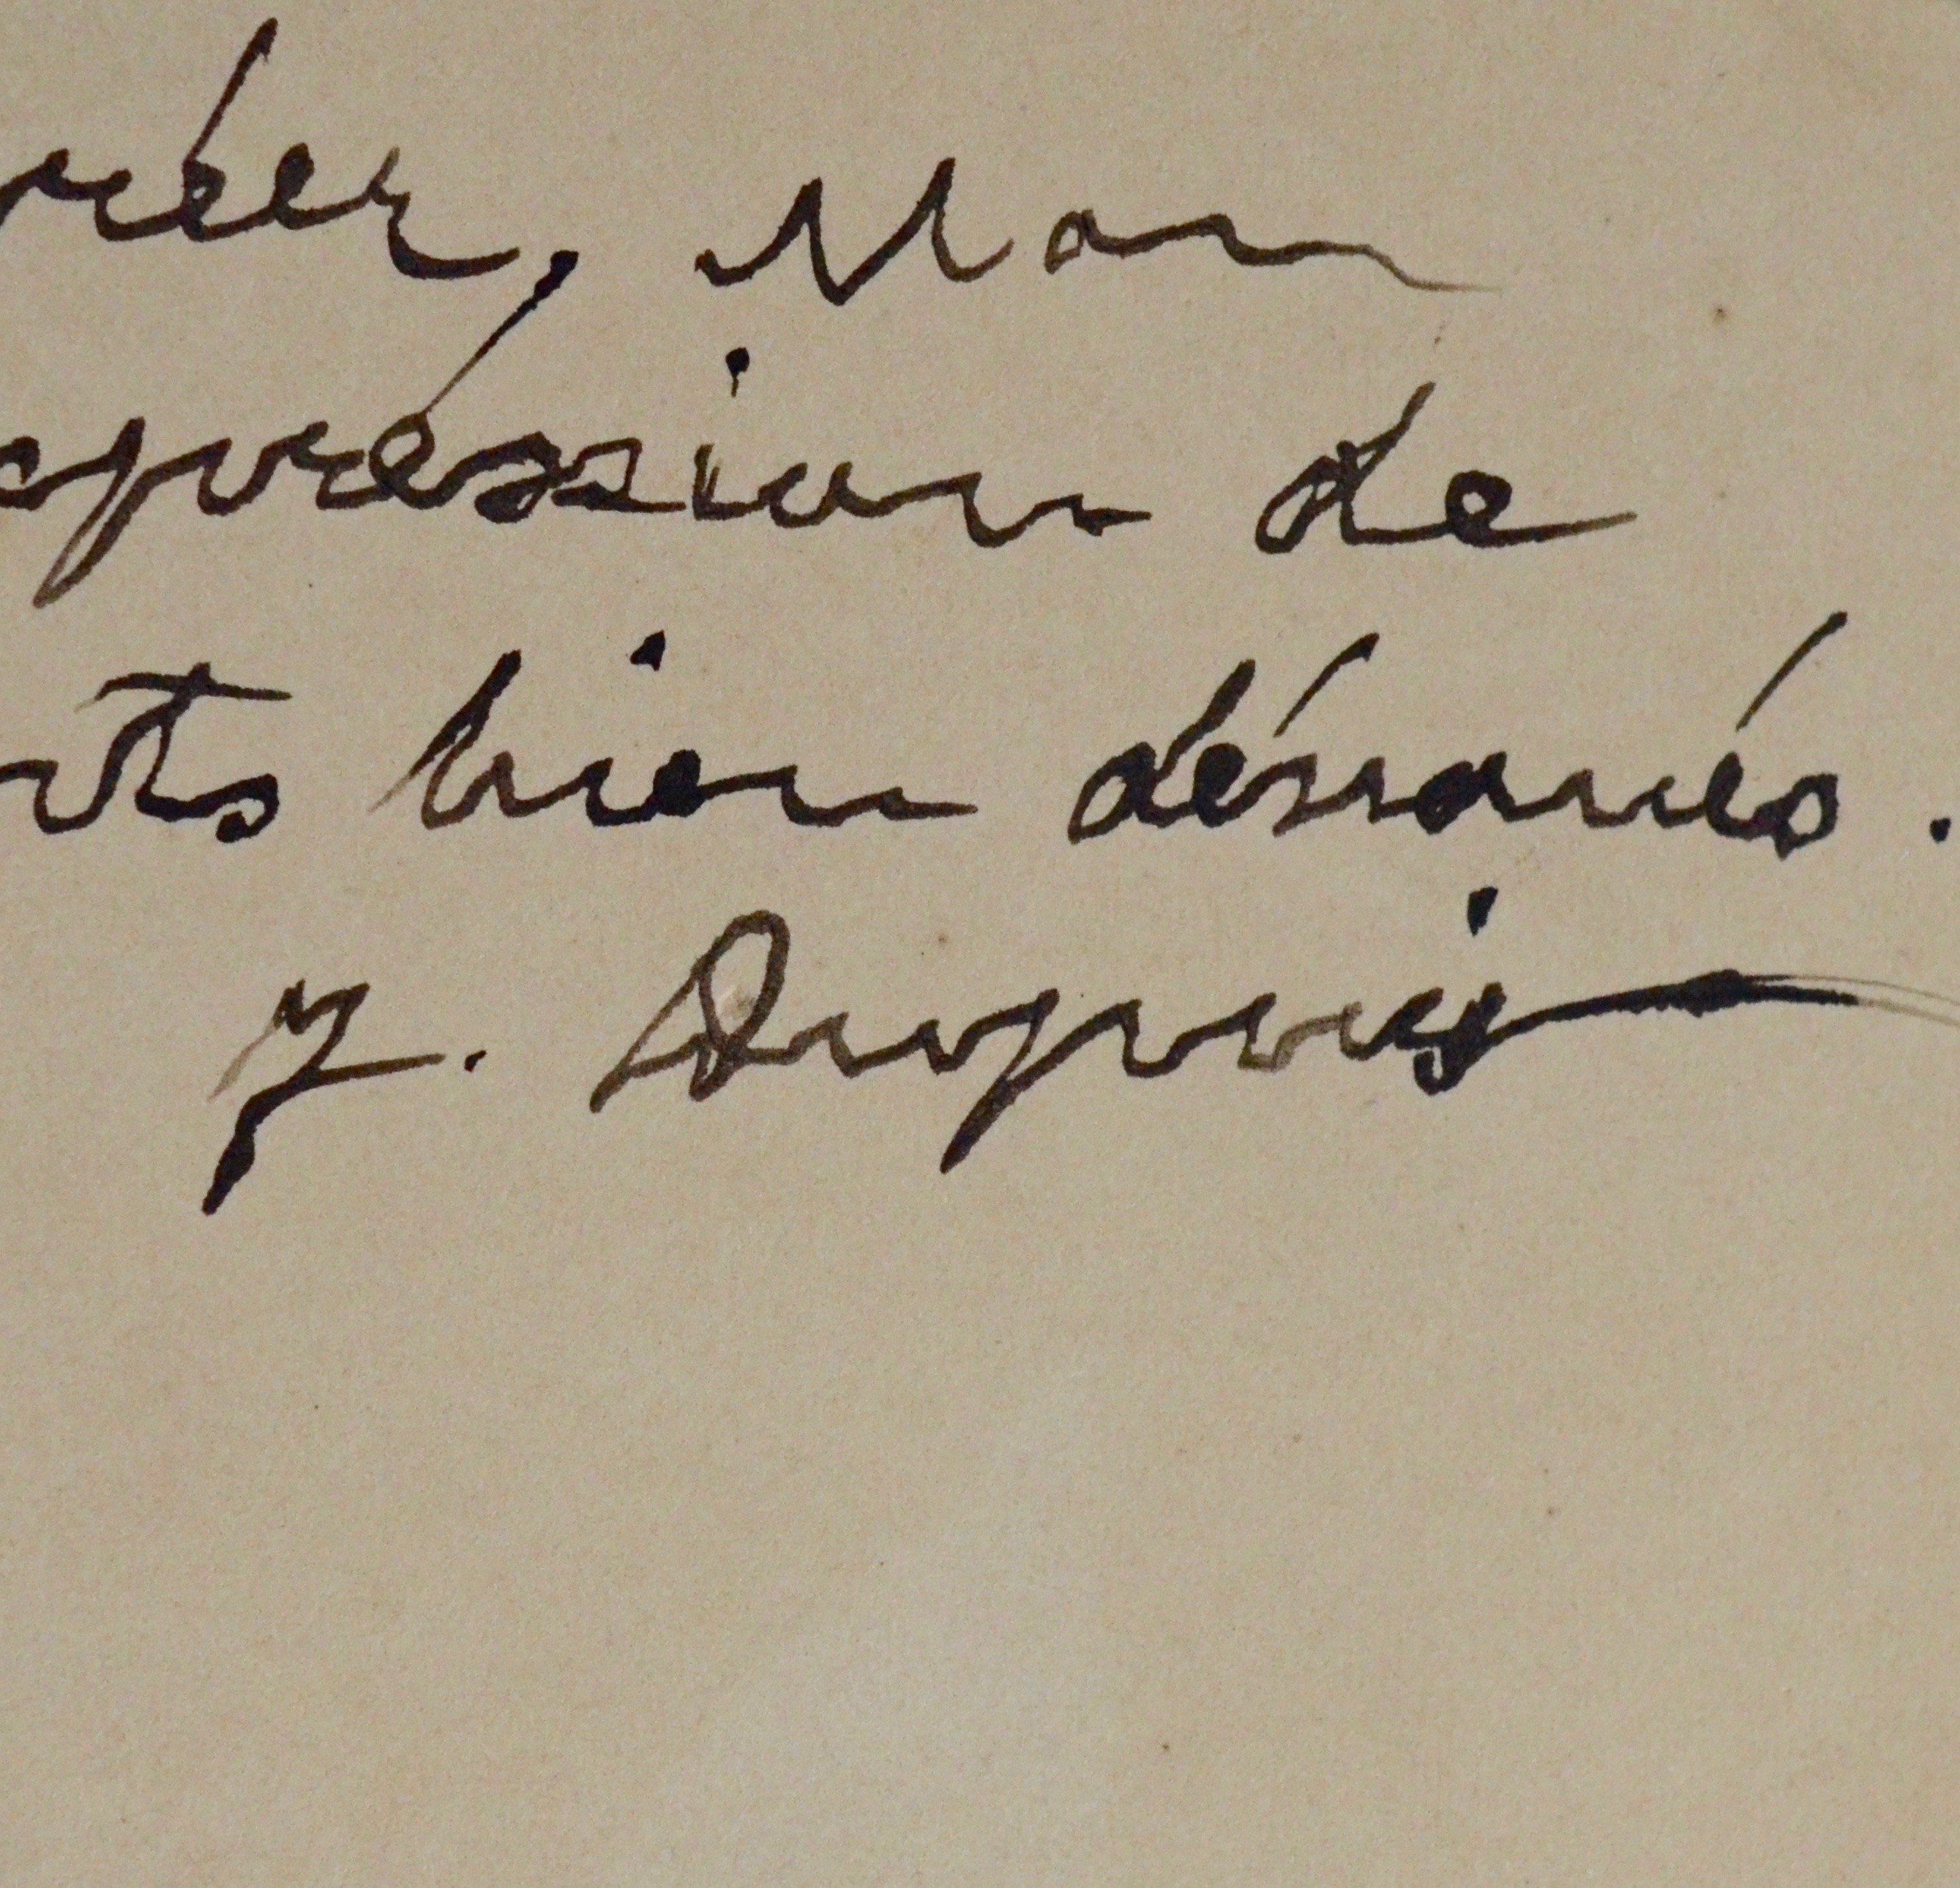 réer, Mon
xpréssion de
nts bien dévoués.
J. Dupuis